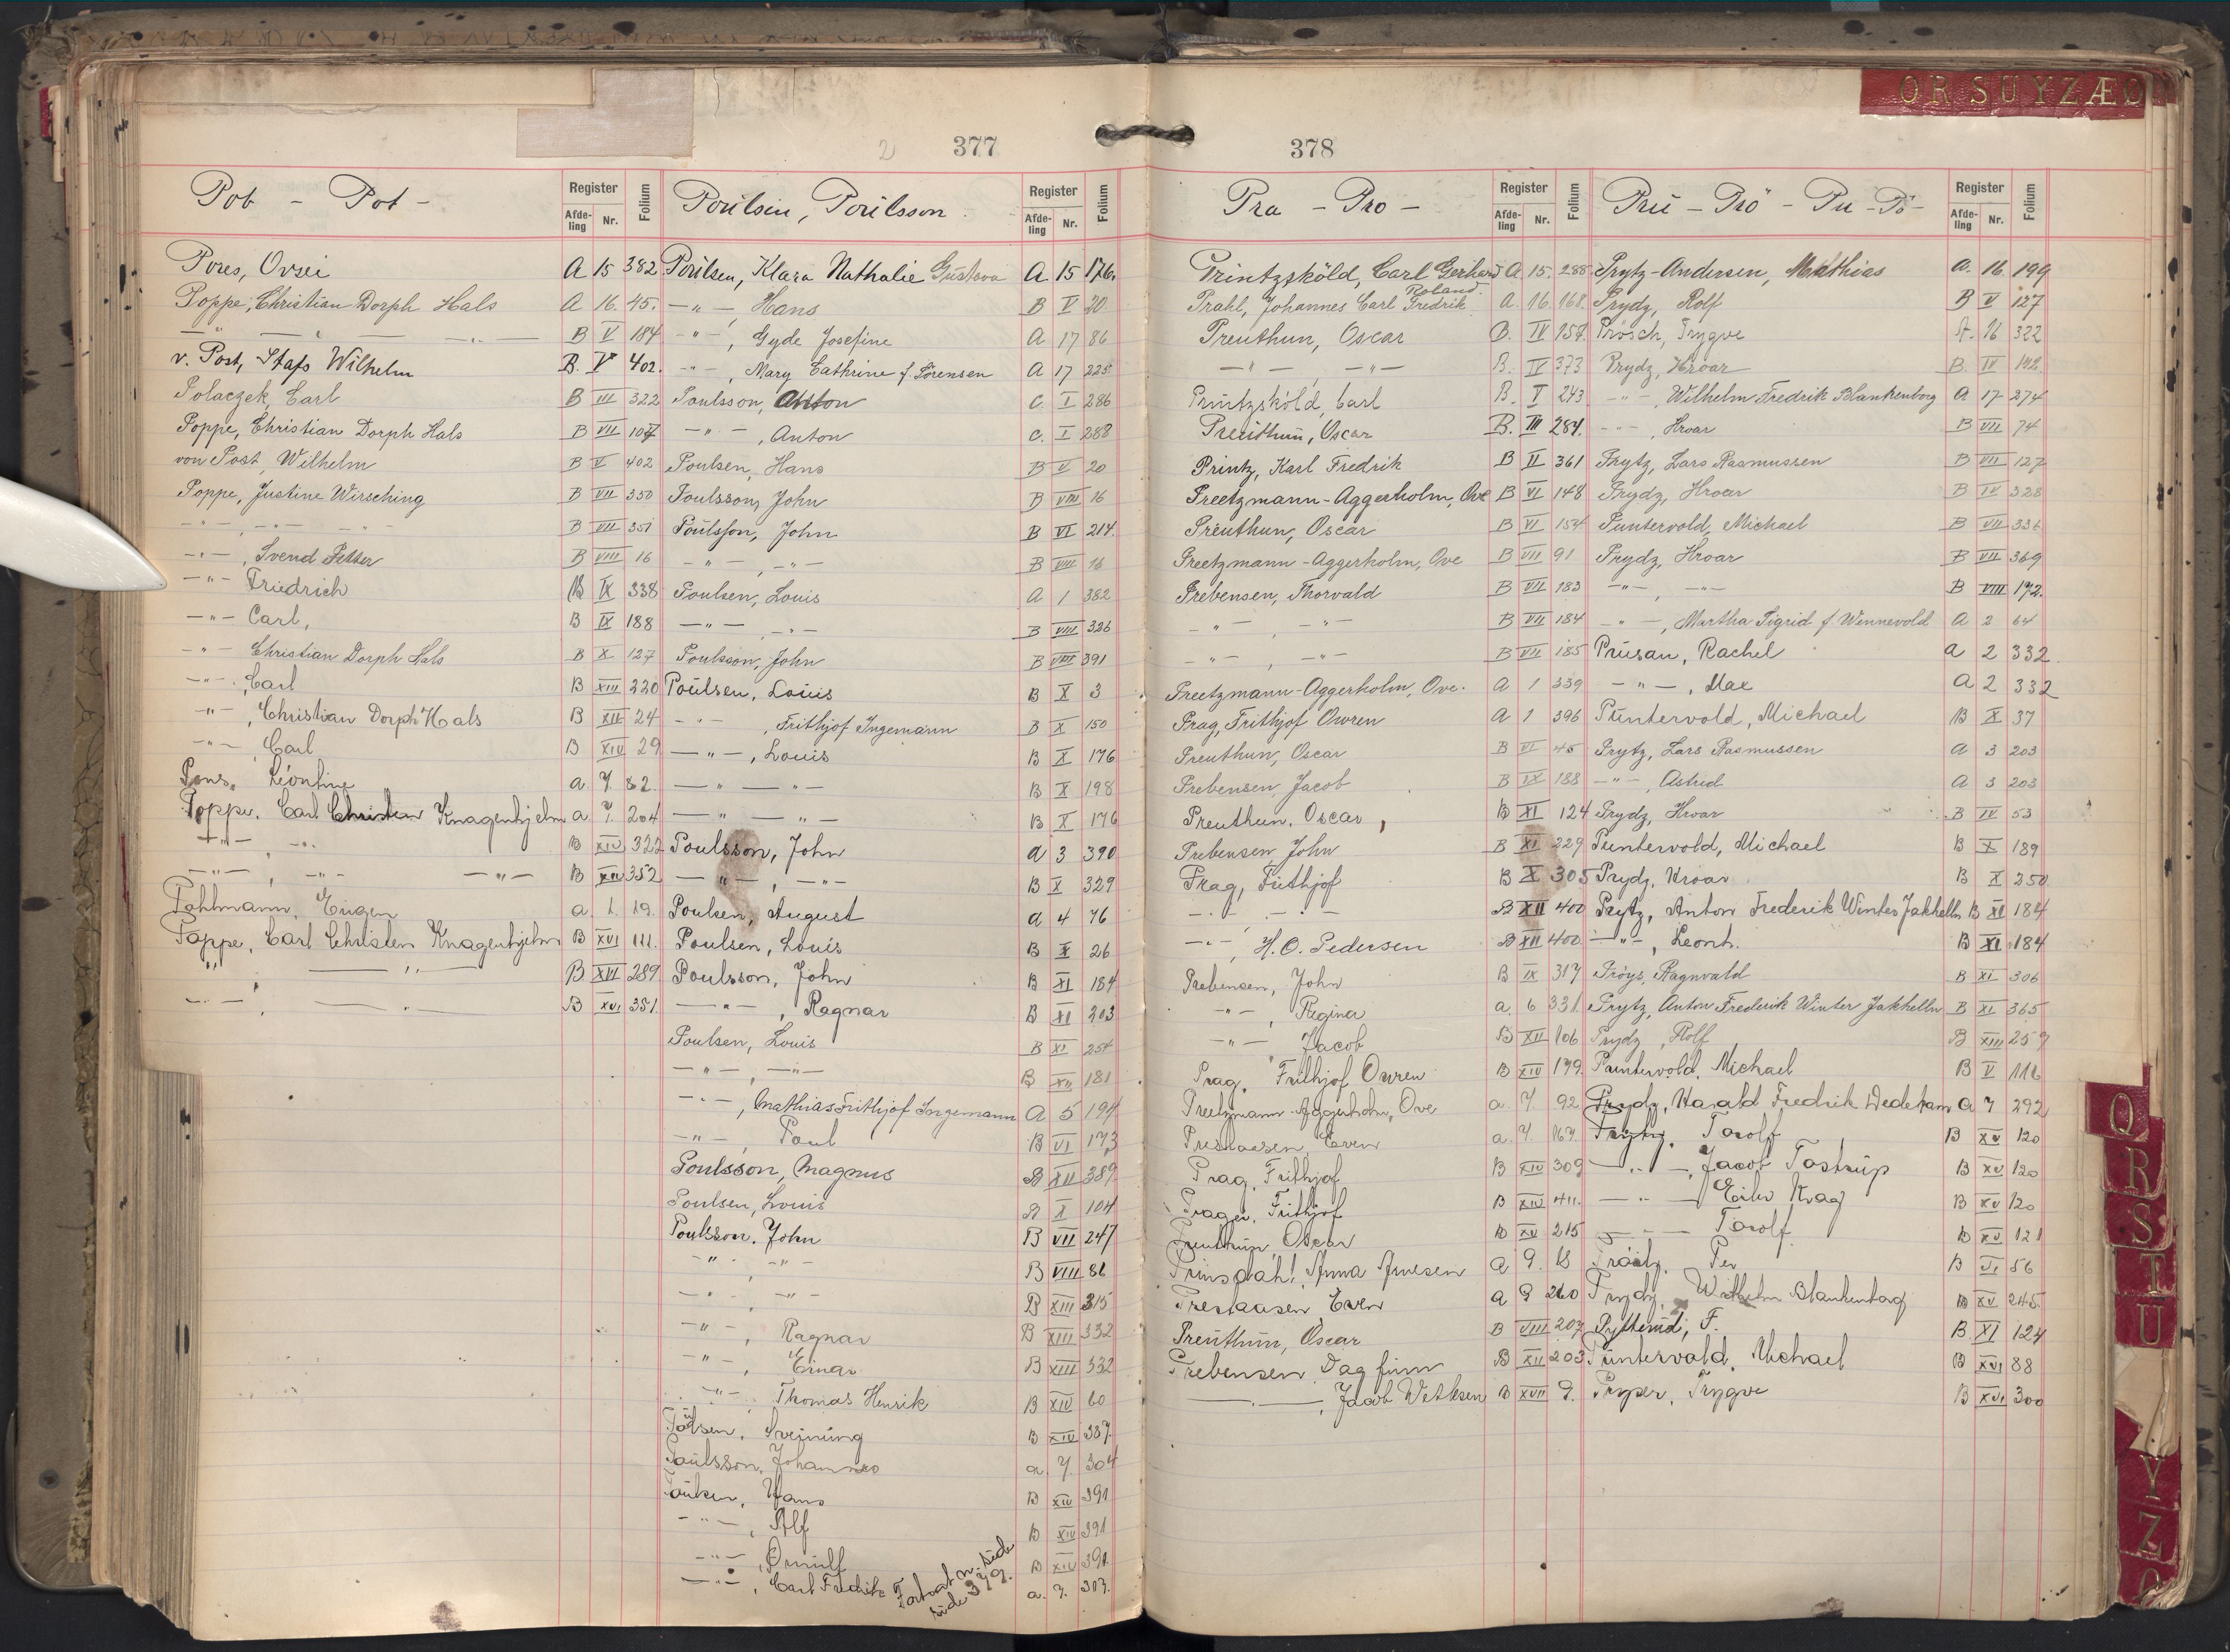 OR SUYZÆØ
2 377
Pob - Pot -
Register
Afde-ling Nr. Folium
Poulsen, Poulsson.
Register
Afde-ling Nr. Folium
Pores, Orsei A 15 382
Poppe, Christian Dorph Hals A 16. 45.
— " — B V 184
v. Post, Stafs Wilhelm B. V 402.
Polaczek, Carl B III 322
Poppe, Christian Dorph Hals B VII 107
von Post, Wilhelm B V 402
Poppe, Justine Wirsching B VII 350
— " — , — " — B VII 351
— " — , Svend Petter B VIII 16
— " — Friedrich B IX 338
— " — Carl, B IX 188
— " — Christian Dorph Hals B X 127
— " — , Carl B XIII 220
— " — , Christian Dorph Hals B XII 24
— " — , Carl B XIV 29
Pons, Léontine a. 7. 82.
Poppe, Carl Christen Knagenhjelm a. 7. 204
— " — , — " — B XIV 322
— " — , — " — — " — B XII 352
Pohlmann, Eugen a. 1. 19.
Poppe, Carl Christen Knagenhjelm B XVI 111.
" — " — B XVI 289
— " — , — " — B XVI 351.
Poulsen, Klara Nathalie Gustava A. 15 176.
— " — , Hans B V 20.
— " — , Gyde Josefine A 17 86
— " — , Mary Cathrine f. Sörensen A 17 225
Poulsson, Anton C. I 286
— " — , Anton C. I 288
Poulsen, Hans B V 20
Poulsson, John B VIII 16
Poulsson, John B VI 214.
— " — , — " — B VIII 16
Poulsen, Louis A 1 382
— " — , — " — B VIII 326
Poulsson, John B VIII 391
Poulsen, Louis B X 3
— " — , Frithjof Ingemann B X 150
— " — , Louis B X 176
— " — — " — B X 198
— " — — " — B X 176
Poulsson, John A 3 390
— " — , — " — B X 329
Poulsen, August A 4 76
Poulsen, Louis B X 26
Poulsson, John B XI 184
— " — , Ragnar B XI 203
Poulsen, Louis B XI 254
— " — , — " — B XII 181
— " — , Mathias Frithjof Ingemann A 5 194
— " — , Poul B VI 173
Poulsson, Magnus B XII 389
Poulsen, Louis B X 104
Poulsson, John B VII 247
— " — , — " — B VIII 86
— " — — " — B XIII 315
— " — , Ragnar B XIII 332
— " — , Einar B XIII 332
— " — , Thomas Henrik B XIV 60
Poulsen, Sveinung B XIV 387.
Poulsson, Johannes a. 7. 304
Poulsen, Hans B XIV 391
— " — , Alf B XIV 391
— " — , Ørnulf B XIV 391.
— " — , Carl Fredrik a. 7. 307.
Fortsat n. side
side 379.
378
Pra - Pro -
Register
Afde-ling Nr. Folium
Pru - Prö - Pu - Pö -
Register
Afde-ling Nr. Folium
Printzsköld, Carl Gerhard Roland A. 15. 288
Prahl, Johannes Carl Fredrik A. 16. 168.
Preuthun, Oscar B. IV 157.
— " — , — " — B. IV 373
Printzsköld, Carl B. V 243
Preuthun, Oscar B. III 284.
Printz, Karl Fredrik B II 361
Preetzmann-Aggerholm, Ove B VI 148
Preuthun, Oscar B VI 154
Preetzmann-Aggerholm, Ove B VII 91
Prebensen, Thorvald B VII 183
— " — , — " — B VII 184
— " — , — " — B VII 185
Preetzmann-Aggerholm, Ove. A 1 339
Prag, Frithjof Owren A 1 396
Preuthun, Oscar B VI 45
Prebensen, Jacob B IX 188
Preuthun, Oscar B XI 124
Prebensen, John B XI 229
Prag, Frithjof B X 305
— " — — " — B XII 400
— " — , H. O. Pedersen B XII 400
Prebensen, John B IX 317
— " — , Regina a. 6 331.
— " — , Jacob B XII 106
Prag, Frithjof Owren B XIV 179.
Preetzmann-Aggerholm, Ove a. 7. 92
Prestaasen, Even a. 7. 167.
Prag, Frithjof B XIV 309
Prager, Frithjof B XIV 411.
Preuthun, Oscar B XV 215
Prinsdahl, Anna Arnesen a 9. 18
Prestaasen, Even a 9 260
Preuthun, Oscar B VIII 207
Prebensen, Dagfinn B XII 203
— " — , Jacob Wetlesen B XVII 9.
Prytz-Andersen, Mathias A. 16. 199
Prydz, Rolf B V 127
Prösch, Trygve A. 16 322
Prydz, Hroar B. IV 192.
— " — , Wilhelm Fredrik Blankenborg A 17 274
— " — , Hroar B VII 74
Prytz, Lars Rasmussen B VII 127
Prydz, Hroar B IV 328
Puntervold, Michael B VII 336
Prydz, Hroar B VII 369
— " — , — " — B VIII 172.
— " — , Martha Sigrid f. Wennevold A 2 64
Prusan, Rachel A 2 332.
— " — , Max A 2 332
Puntervold, Michael B X 37
Prytz, Lars Rasmussen A 3 203
— " — , Astrid A 3 203
Prydz, Hroar B IV 53
Puntervold, Michael B X 189
Prydz, Hroar B X 250
Prytz, Anton Frederik Winter Jakhelln B XI 184
— " — , Leont. B XI 184
Pröys, Ragnvald B XI 306
Prytz, Anton Frederik Winter Jakhelln B XI 365
Prydz, Rolf B XIII 259
Puntervold, Michael B V 116
Prydz, Harald Fredrik Wedekam A 7 292
Prytz, Torolf B XV 120
— " — , Jacob Tostrup B XV 120
— " — Eiler Krag B XV 120
— " — Torolf B XV 121
Per B VI 56
Prydz, Wilhelm Blankenborg B XV 245.
Pytterud, F. B. XI 124
Puntervold, Michael B XVI 88
Pryser, Trygve B XVI 300
Q
R
S
T
U
Y
Z